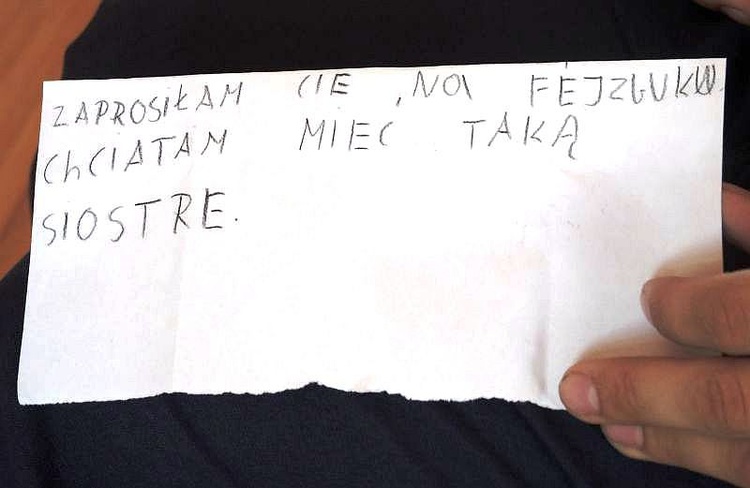 ZAPROSIŁAM CIE , NA FEJZBUKU.
ChCIATAM MIEC TAKĄ
SIOSTRE.